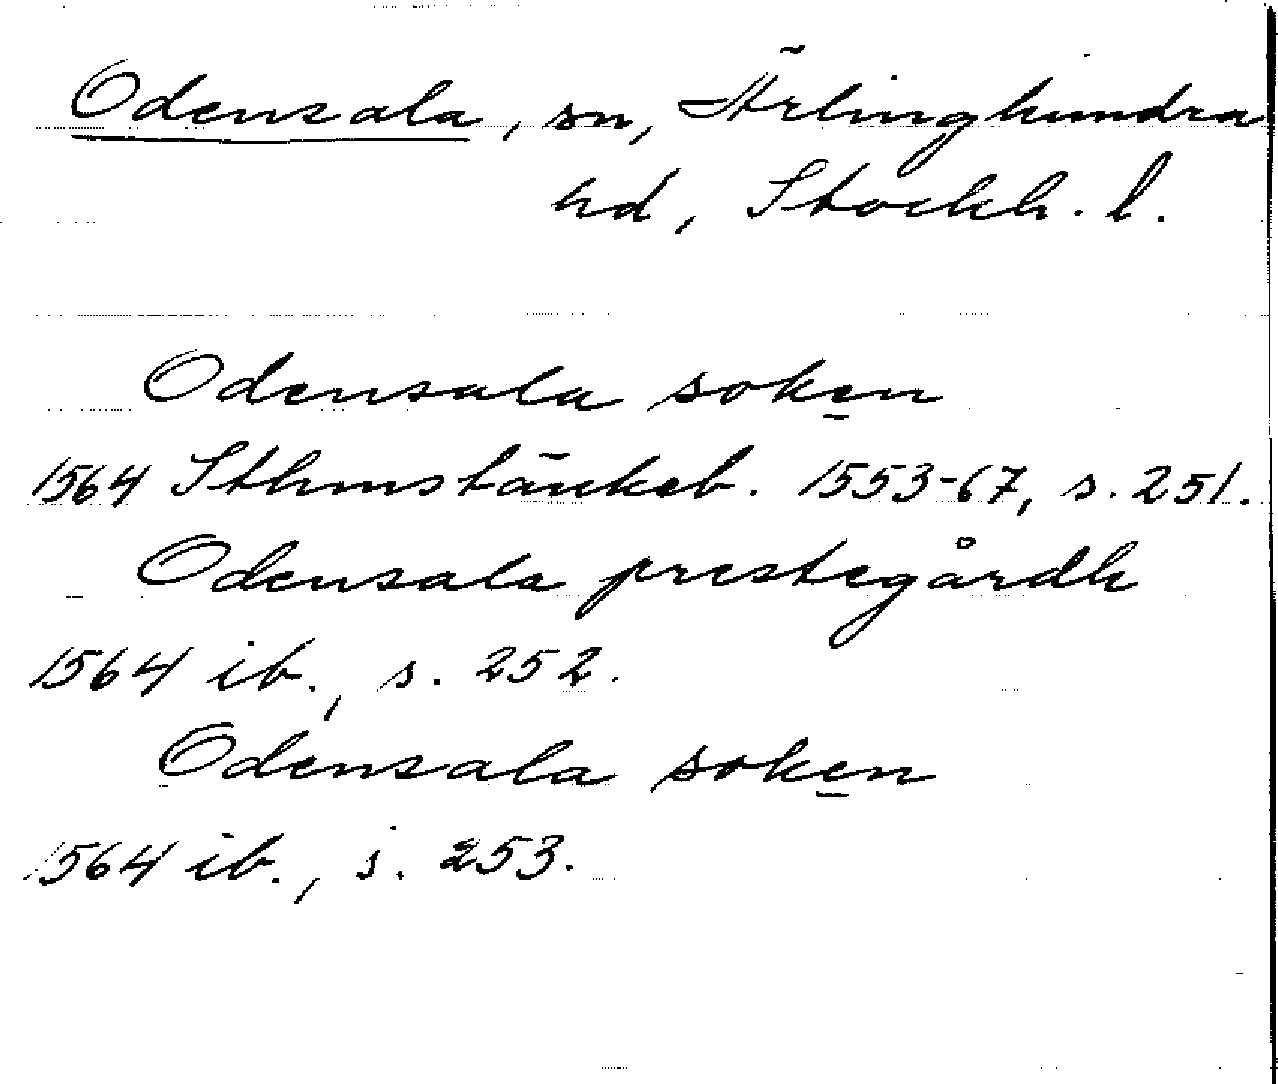 Odensala, sn, Ärlinghundra
hd, Stockh. l.
Odensala soken
1564 Sthmstänkeb. 1553-67, s. 251.
Odensala prestegårdh
1564 ib., s. 252.
Odensala soken
1564 ib., s. 253.